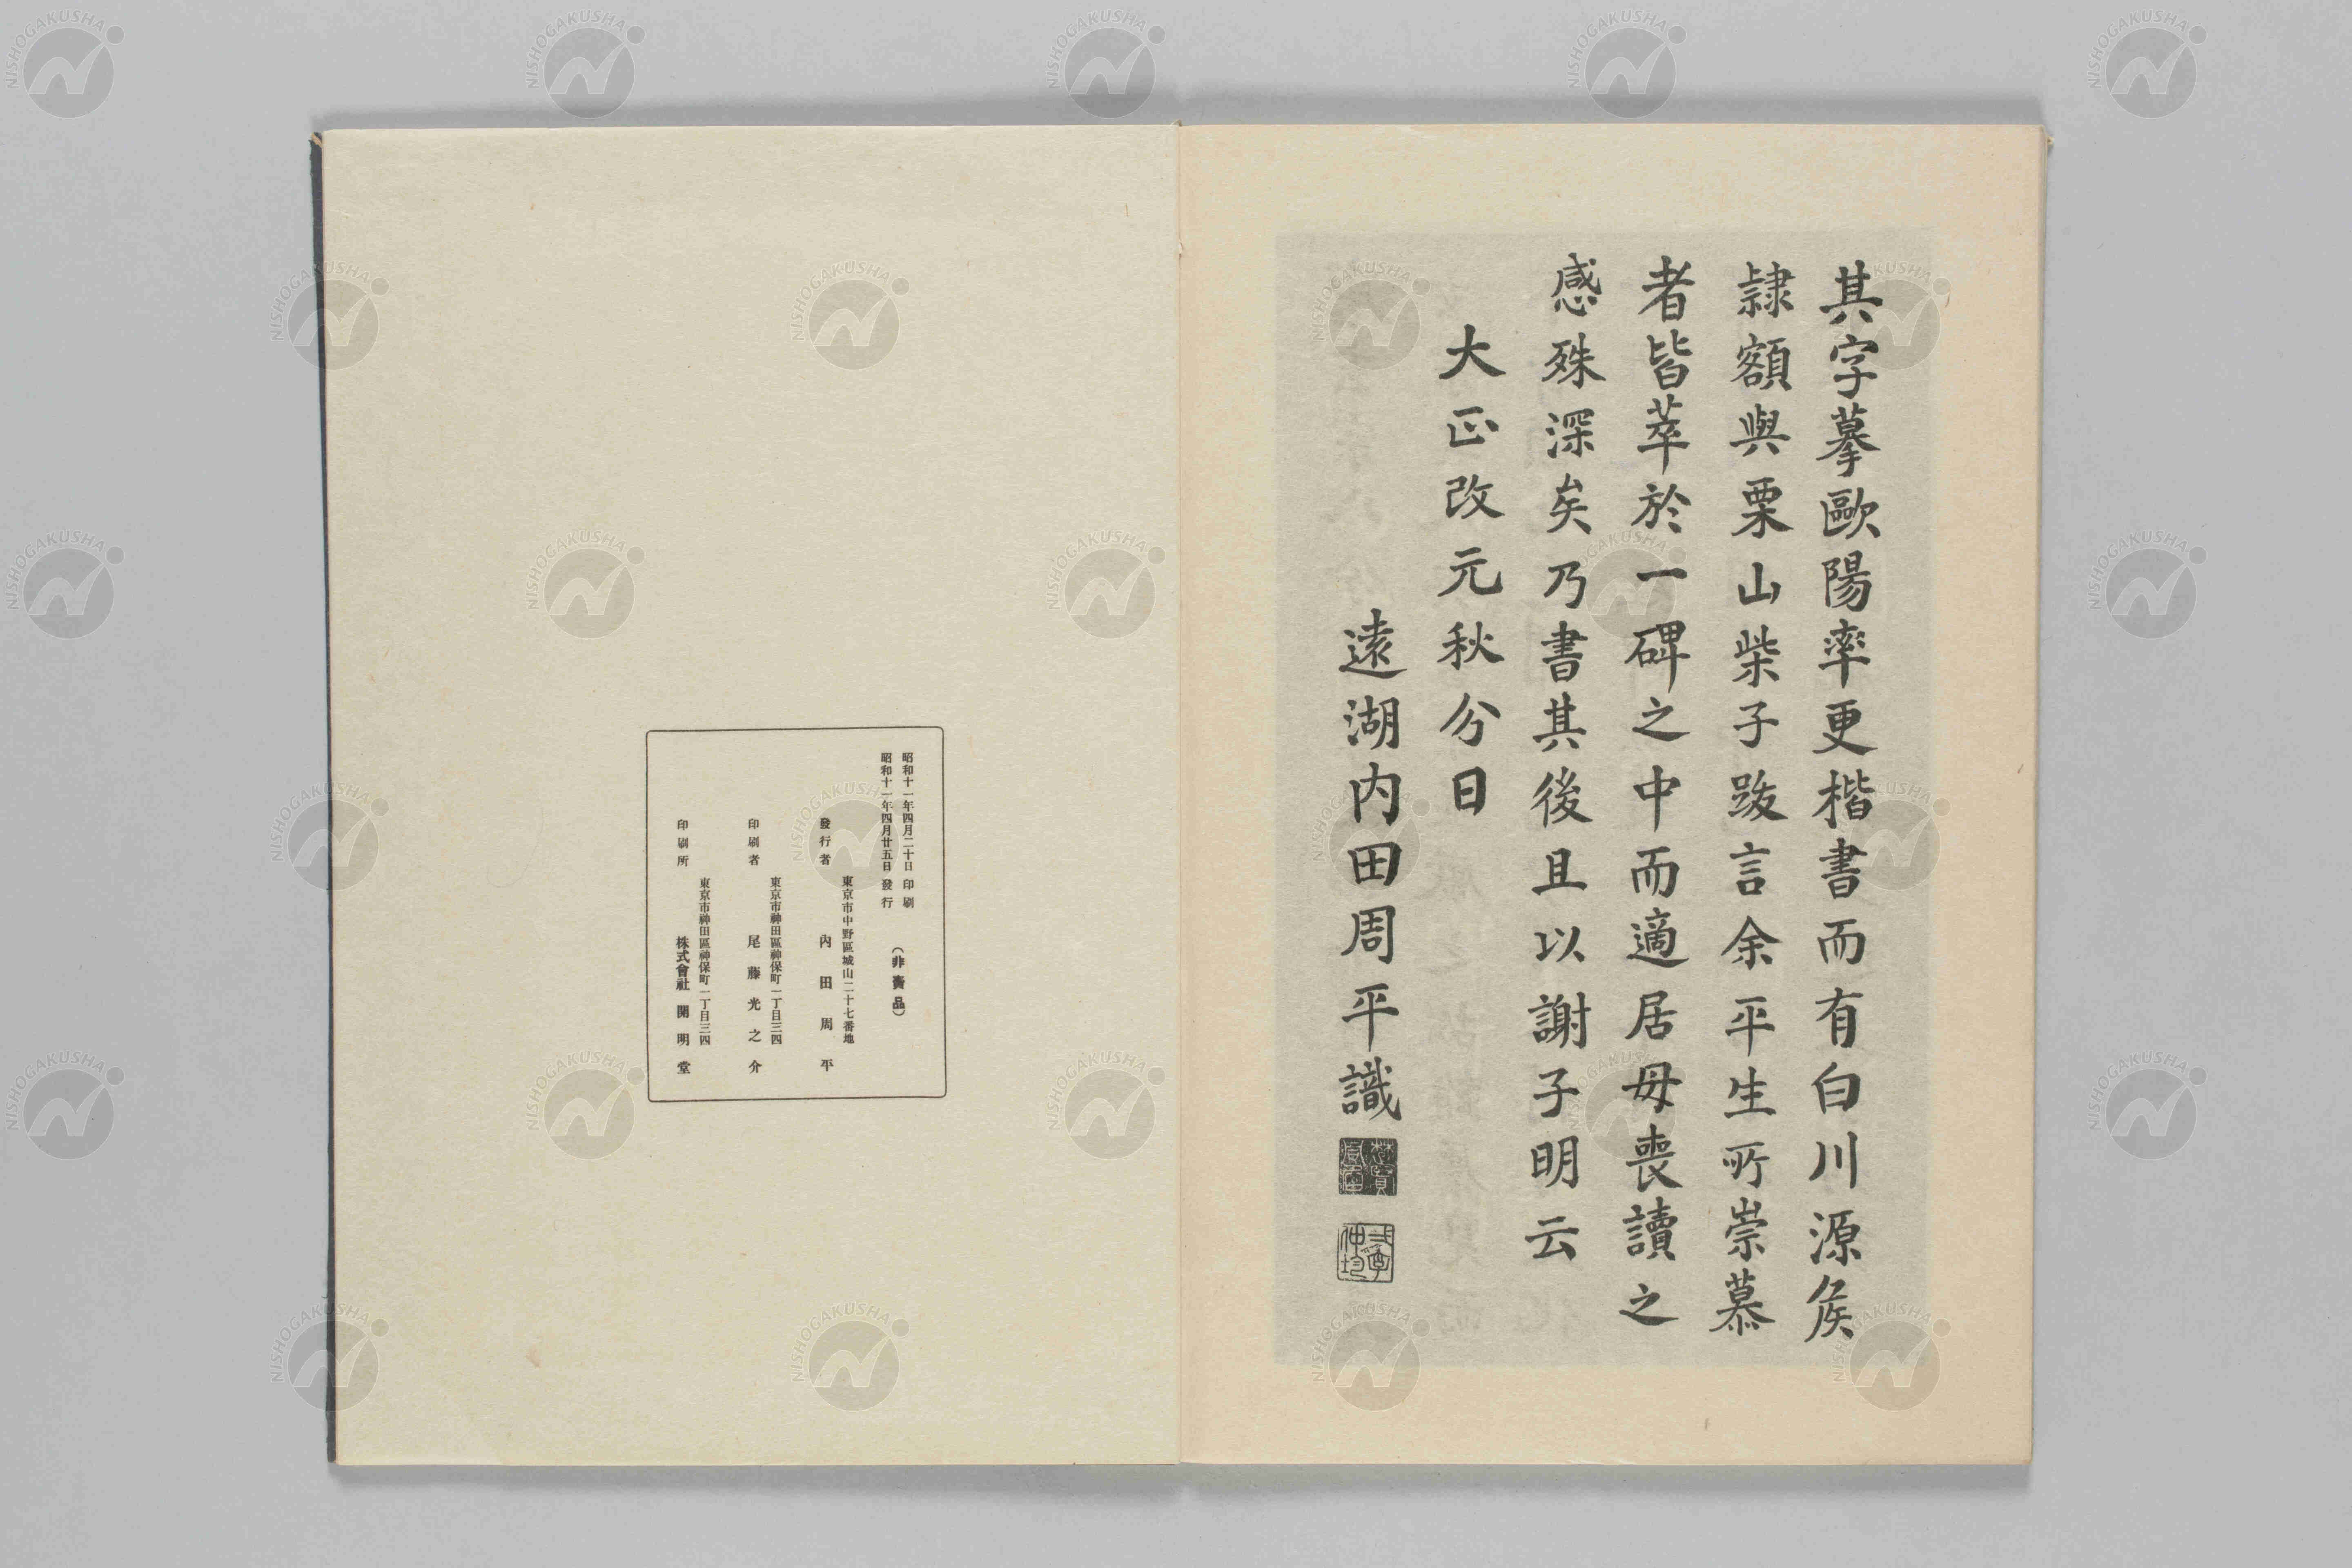 其字摹歐陽率更楷書而有白川源侯
隷額與栗山柴子跋言余平生所崇慕
者皆萃於一碑之中而適居母喪讀之
感殊深矣乃書其後且以謝子明云
大正改元秋分日
遠湖内田周平識
昭和十一年四月二十日印刷
昭和十一年四月廿五日發行
(非賣品)
東京市中野區城山二十七番地
發行者 內田周平
東京市神田區神保町一丁目三四
印刷者 尾藤光之介
東京市神田區神保町一丁目三四
印刷所 株式會社開明堂
NISHOGAKUSHA